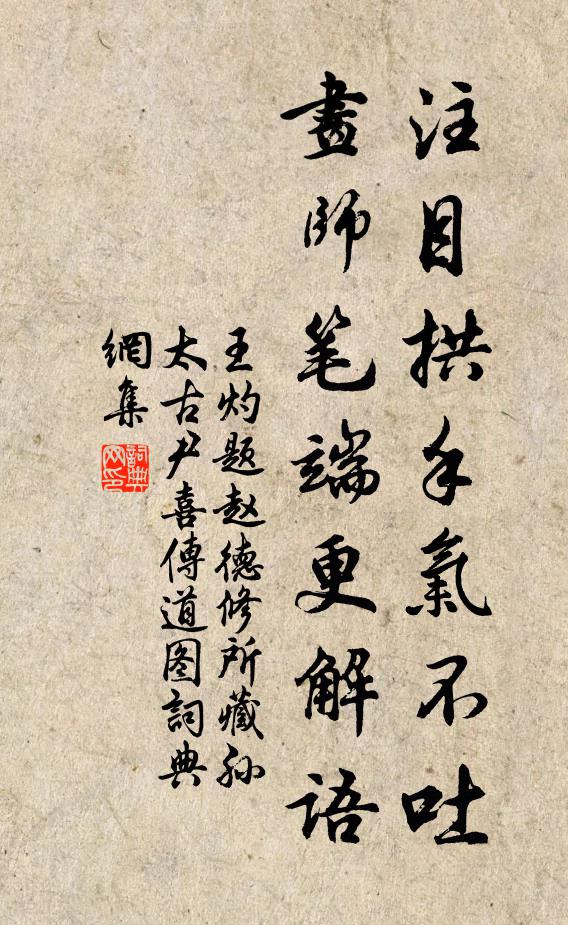 注目拱手氣不吐
畫師笔端更解语
王灼题赵德修所藏孙
太古尹喜傳道图詞典
網集
詞典
网印